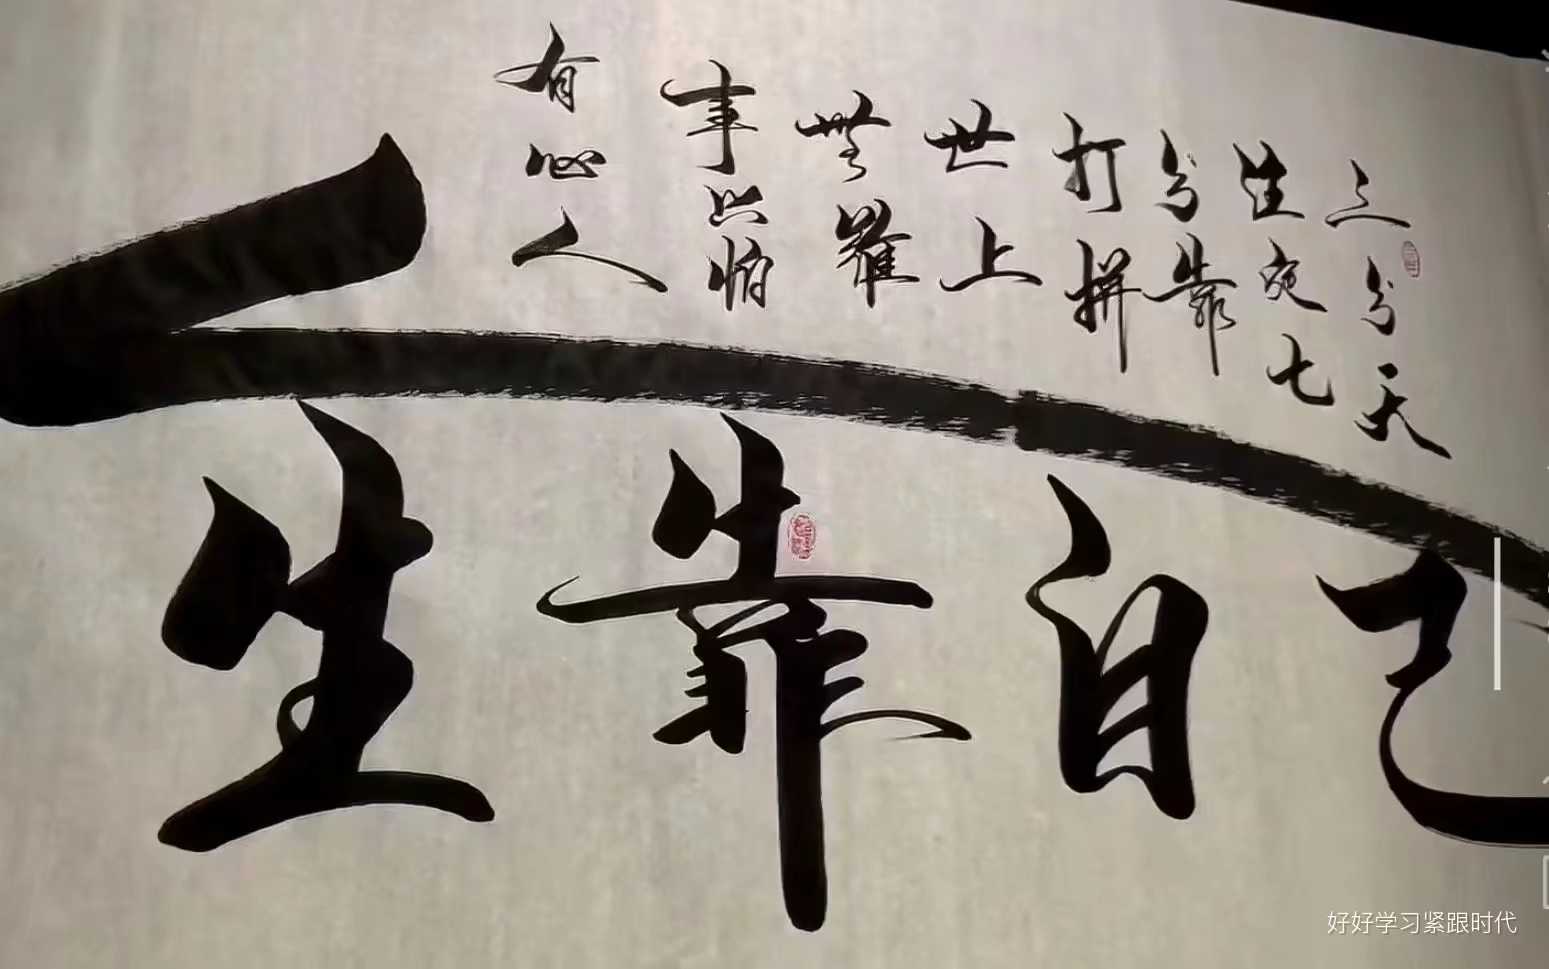 三分天
注定七
分靠
打拼
世上
無難
事只怕
有心人
一生靠自己
好好学习紧跟时代